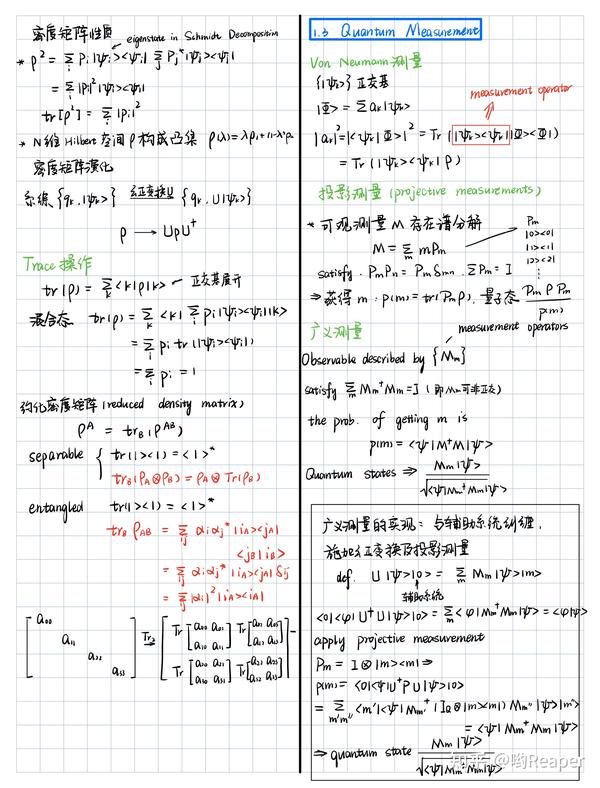 密度矩阵性质
eigenstate in Schmidt Decomposition
* ρ² = Σᵢ Pᵢ|ψᵢ><ψᵢ| Σⱼ Pⱼ*|ψⱼ><ψⱼ|
= Σᵢ |Pᵢ|²|ψᵢ><ψᵢ|
tr[ρ²] = Σᵢ |Pᵢ|²
* N维Hilbert空间 ρ构成凸集 ρ(λ)=λρ₁+(1-λ)ρ₂
密度矩阵演化
系综 {qₖ,|ψₖ>} 幺正变换U {qₖ, U|ψₖ>}
ρ → UρU†
Trace 操作
tr(ρ) = Σₖ <k|ρ|k> ← 正交基展开
混合态 tr(ρ) = Σₖ <k| Σᵢ Pᵢ|ψᵢ><ψᵢ||k>
= Σᵢ Pᵢ tr(|ψᵢ><ψᵢ|)
= Σᵢ Pᵢ = 1
约化密度矩阵(reduced density matrix)
ρᴬ = tr_B(ρᴬᴮ)
separable { tr(|><|) = <|>*
tr_B(ρ_A⊗ρ_B) = ρ_A⊗Tr(ρ_B)
entangled tr(|><|) = <|>*
tr_B ρ_AB = Σᵢⱼ αᵢαⱼ*|i_A><j_A|
<j_B|i_B>
= Σᵢⱼ αᵢαⱼ*|i_A><j_A|δᵢⱼ
= Σᵢ |αᵢ|²|i_A><i_A|
1.3 Quantum Measurement
Von Neumann 测量
{|ψₖ>} 正交基
measurement operator
|Φ> = Σ aₖ|ψₖ>
|aₖ|² = |<ψₖ|Φ>|² = Tr(|ψₖ><ψₖ||Φ><Φ|)
= Tr(|ψₖ><ψₖ|ρ)
投影测量(projective measurements)
* 可观测量M 存在谱分解
Pₘ
|0><0|
M = Σₘ mPₘ
|1><1|
|2><2|
satisfy. PₘPₙ = Pₘδₘₙ, ΣPₘ = I
⋮
⇒ 获得m: p(m) = tr(Pₘρ), 量子态 PₘρPₘ / p(m)
广义测量
measurement operators
Observable described by {Mₘ}
satisfy Σₘ Mₘ†Mₘ = I (即Mₘ可非正交)
the prob. of getting m is
p(m) = <ψ|M†M|ψ>
Quantum states ⇒ Mₘ|ψ> / √<ψ|Mₘ†Mₘ|ψ>
广义测量的实现: 与辅助系统纠缠,
施加幺正变换及投影测量
def. U|ψ>|0> = Σₘ Mₘ|ψ>|m>
辅助系统
<0|<φ|U†U|ψ>|0> = Σₘ<φ|Mₘ†Mₘ|ψ> = <φ|ψ>
apply projective measurement
Pₘ = I⊗|m><m| ⇒
p(m) = <0|<ψ|U†PU|ψ>|0>
= Σₘ'ₘ'' <m'|<ψ|Mₘ'†(I_Q⊗|m><m|)Mₘ''|ψ>|m''>
= <ψ|Mₘ†Mₘ|ψ>
⇒ quantum state Mₘ|ψ> / √<ψ|Mₘ†Mₘ|ψ>
知乎 @哟Reaper